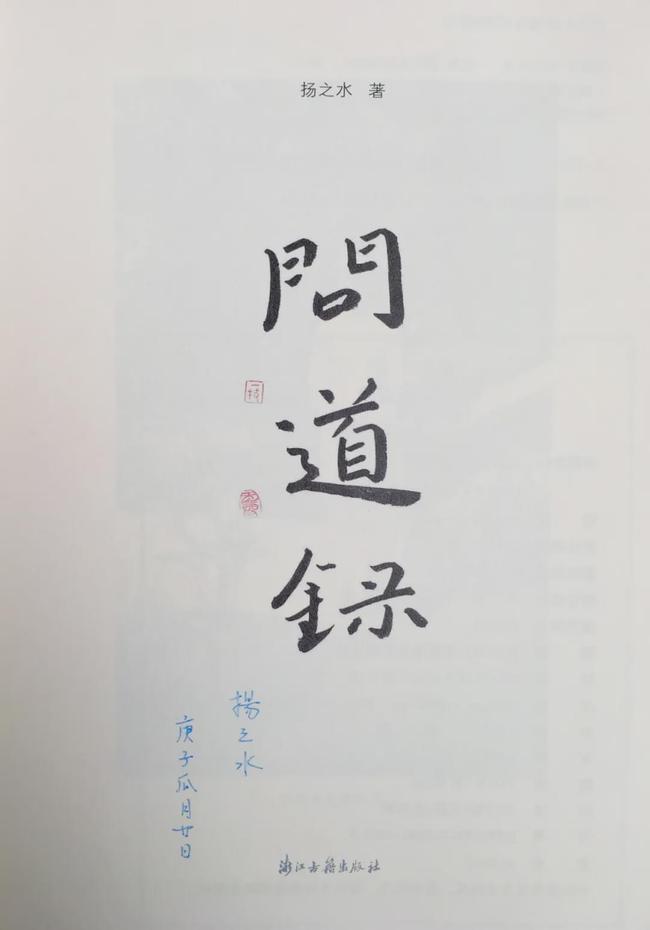 扬之水 著
問
道
録
揚之水
庚子瓜月廿日
浙江古籍出版社